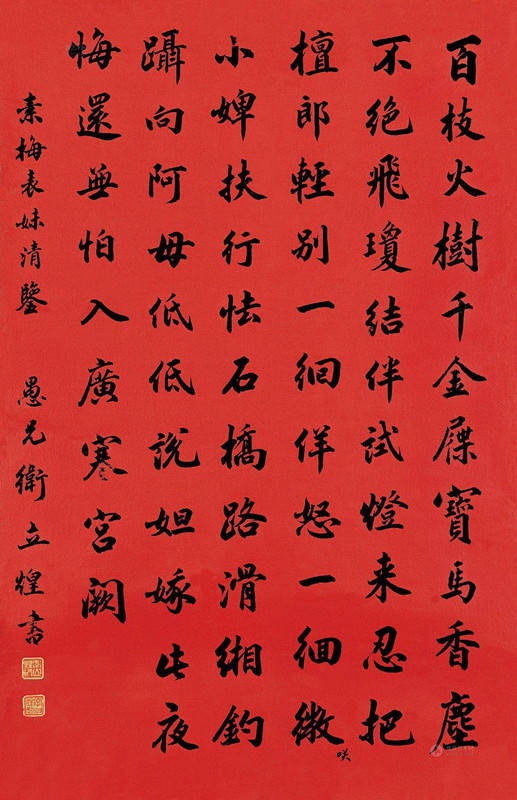 百枝火樹千金屧寶馬香塵
不絕飛瓊結伴試燈来忍把
檀郎輕別一徊佯怒一徊微咲
小婢扶行怯石橋路滑緗釣
躡向阿母低低說姮娥此夜
悔還無怕入廣寒宮闕
素梅表妹清鑒 愚兄衛立煌書